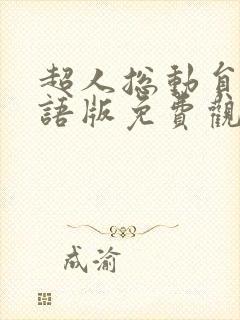 超人总動員
語版免費觀
成渝